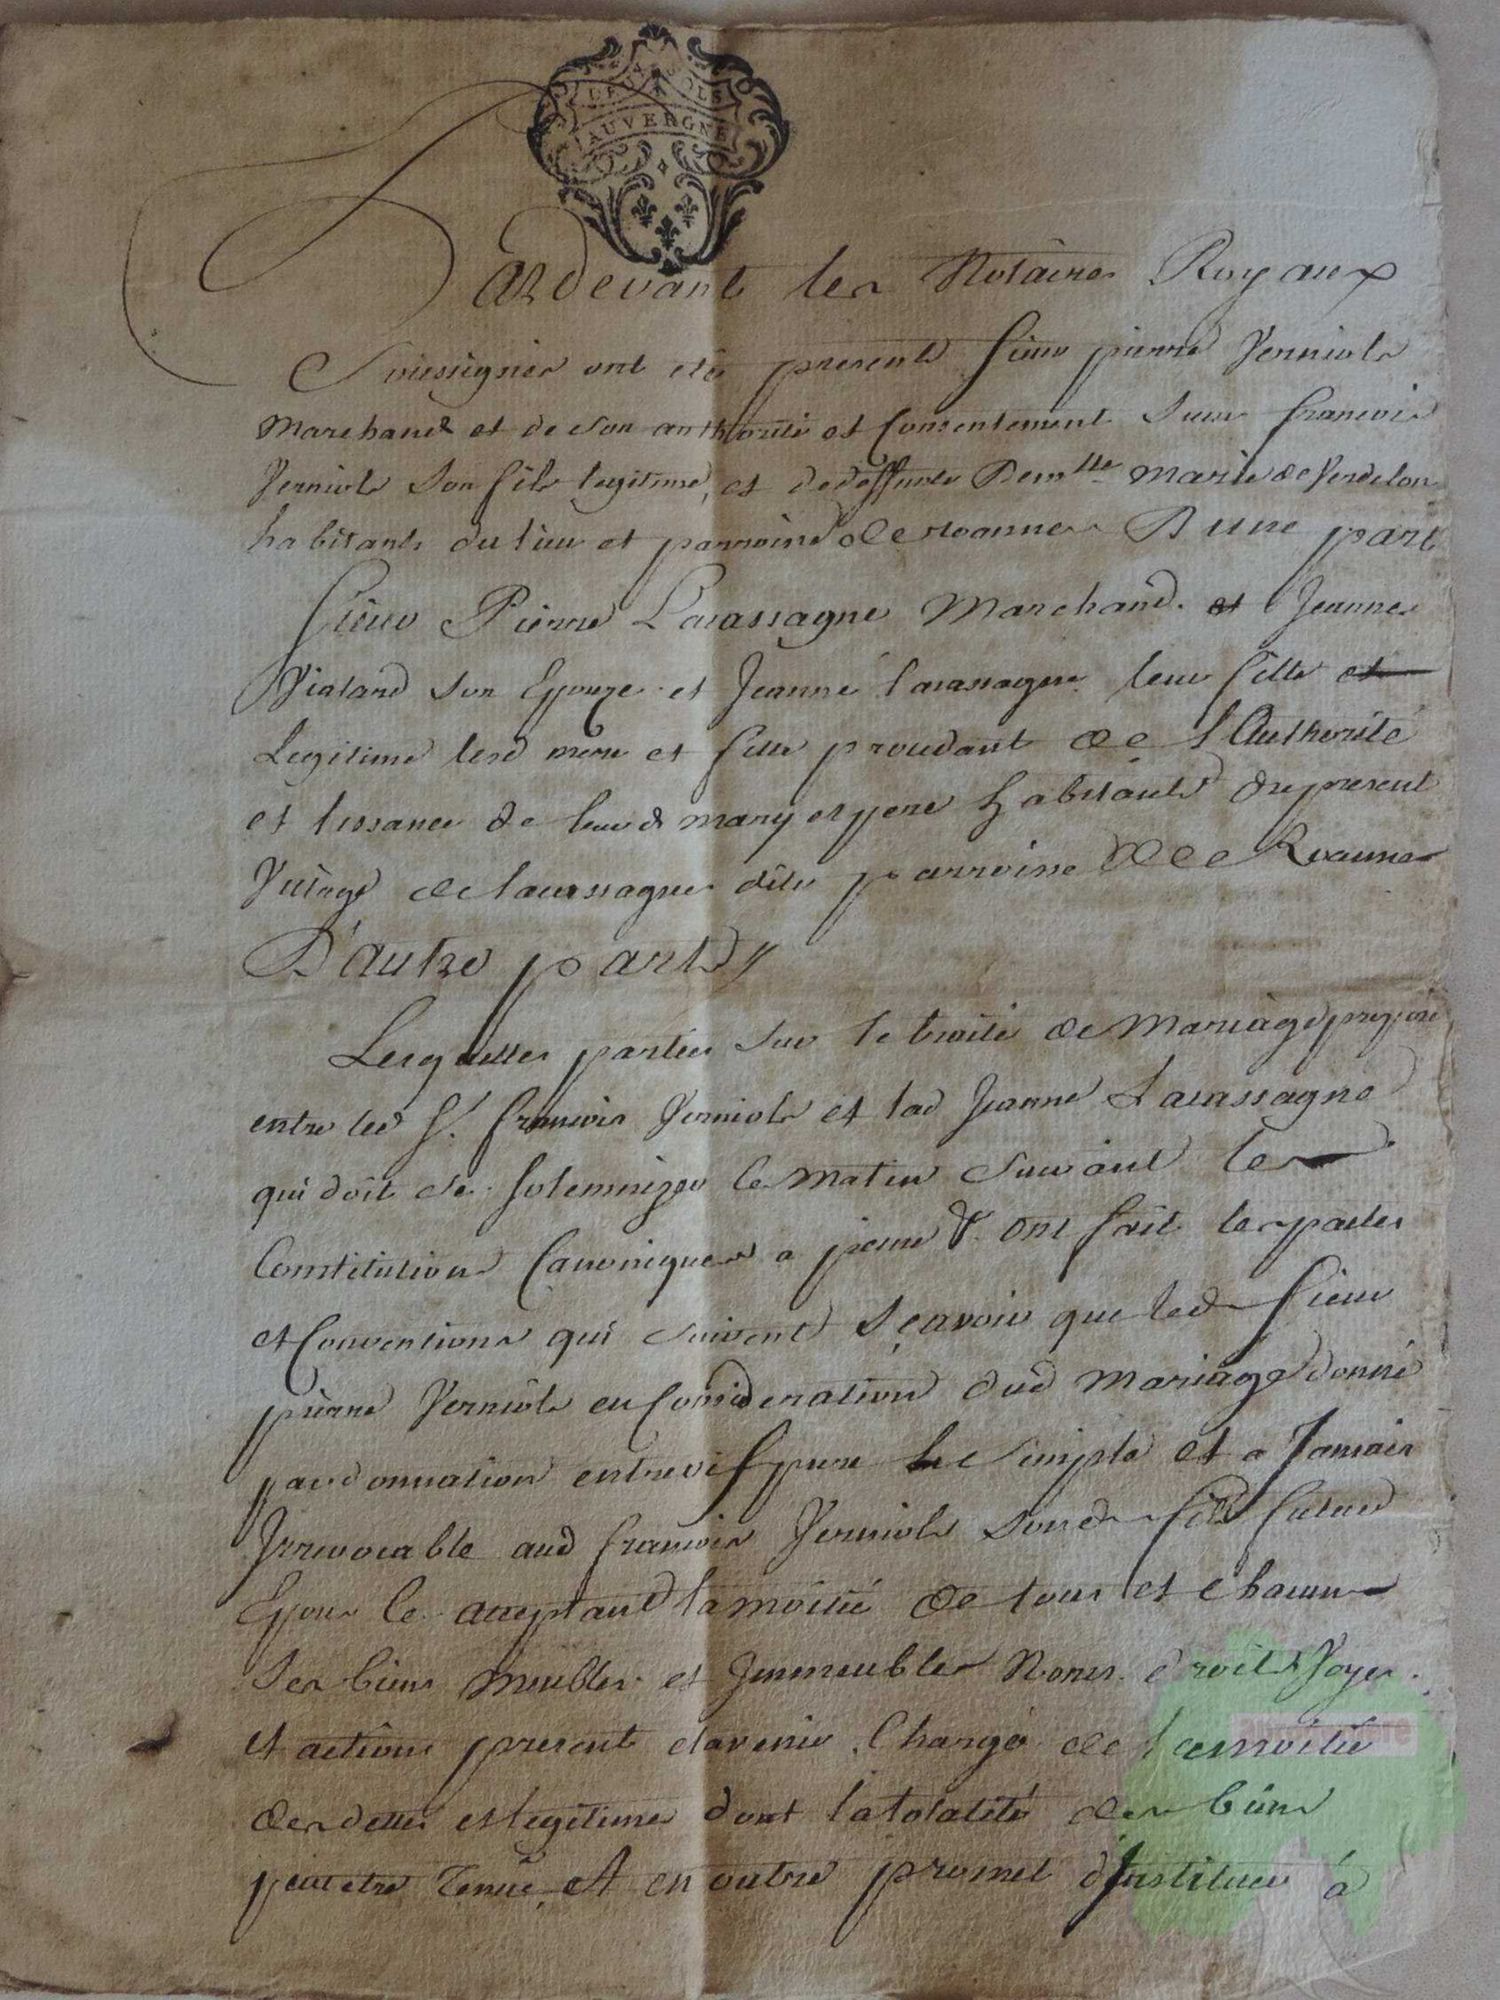 DEUX SOLS
AUVERGNE
Pardevant les Notaires Royaux
Soussignés ont etés presents Sieur pierre Verniols
Marchand et de son authorité et Consentement Sieur francois
Verniols Son fils legitime, et de deffunte Demlle Marie de Verdelon
habitants du lieu et parroisse de roannes D'une part
Sieur Pierre Lacassagne Marchand et Jeanne
Vialard son Epouze et Jeanne lacassagne leur fille et
Legitime lesd mere et fille procedant de L'Authorité
et lissance de leurd mary et pere habitants du present
Village de lacassagne dite parroisse de Roannes
D'autre part
Lesquelles parties Sur le traité de Mariage proposé
entre led Sr. francois Verniols et lad Jeanne Lacassagne
qui doit se Solemnizer le matin Suivant les
Constitutions Canoniques a peine &. ont fait les pactes
et Conventions qui suivent Sçavoir que led Sieur
pierre Verniols en Consideration dud Mariage donne
par donnation entrevifs pure et Simple et a Jamais
Irrevocable aud francois Verniols Sond fils futur
Epoux Ce acceptant la moitié de tous et Chacuns
Ses biens Meubles et Immeubles Noms droits Voyes
et actions present et avenir Chargé de la moitié
des dettes et legitimes dont la totalité des biens
peut etre Tenue Et en outre promet d'Instituer à